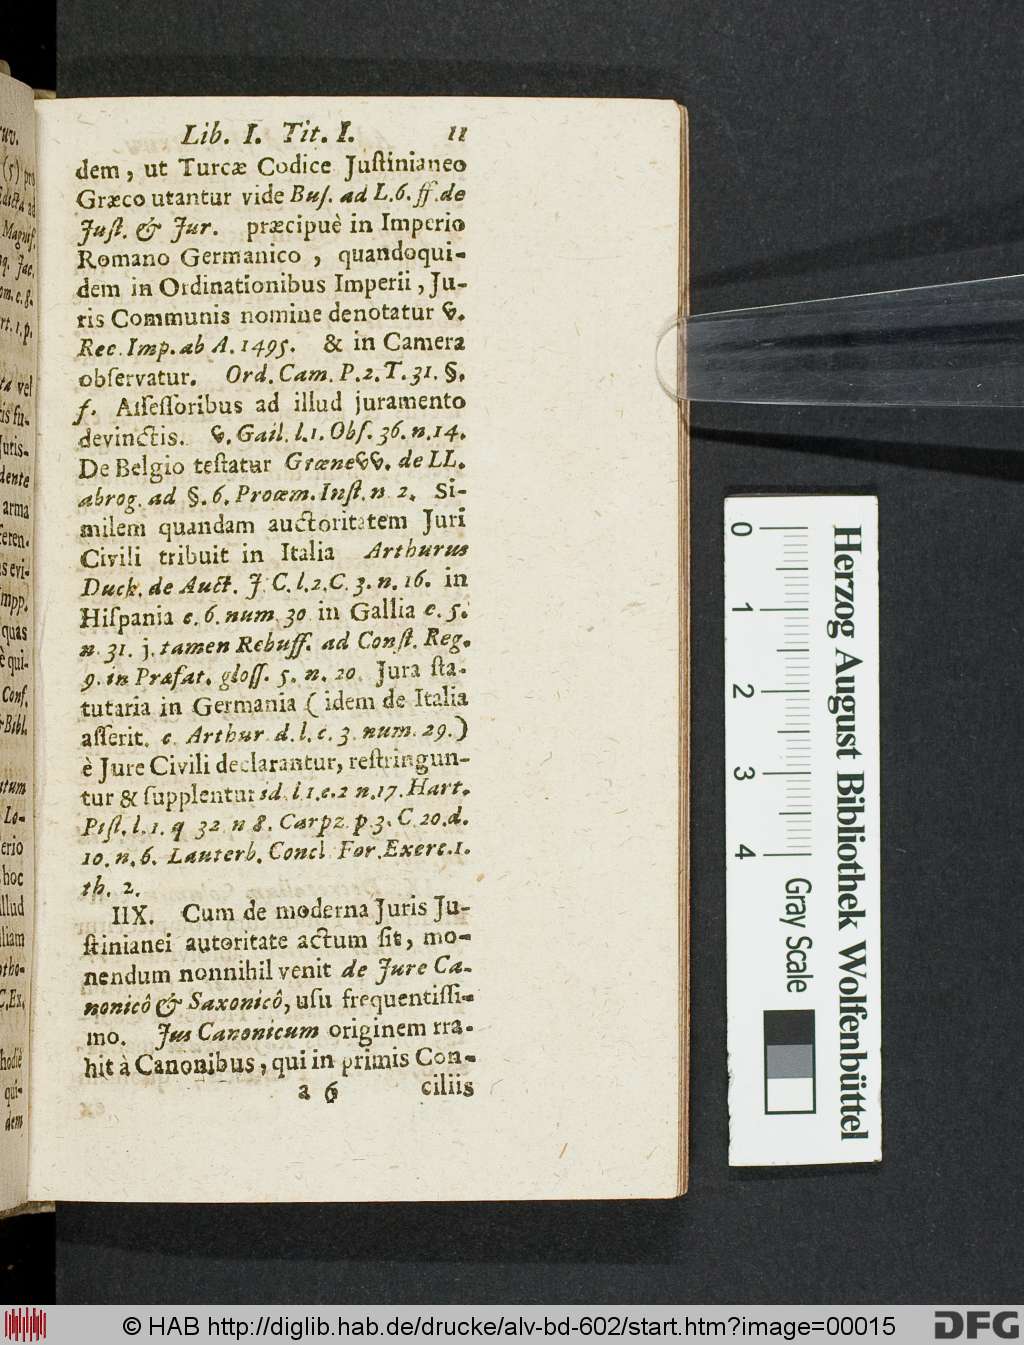 Lib. I. Tit. I. 11
dem, ut Turcæ Codice Juſtinianeo
Græco utantur vide Buſ. ad L.6.ff.de
Juſt. & Jur. præcipuè in Imperio
Romano Germanico, quandoqui-
dem in Ordinationibus Imperii, Ju-
ris Communis nomine denotatur v.
Rec. Imp. ab A. 1495. & in Camera
obſervatur. Ord. Cam. P.2.T.31. §.
f. Aſſeſſoribus ad illud juramento
devinctis. v. Gail. l.1. Obſ. 36. n.14.
De Belgio teſtatur Grœnevv. de LL.
abrog. ad §. 6. Proœm. Inſt. n 2. Si-
milem quandam auctoritatem Juri
Civili tribuit in Italia Arthurus
Duck. de Auct. J C. l.2.C. 3. n. 16. in
Hiſpania c. 6. num 30 in Gallia c. 5.
n. 31. j. tamen Rebuff. ad Conſt. Reg.
9. in Præfat. gloſſ. 5. n. 20. Jura ſta-
tutaria in Germania (idem de Italia
aſſerit. c. Arthur d. l. c. 3. num. 29.)
è Jure Civili declarantur, reſtringun-
tur & ſupplentur id. l 1. c. 2 n. 17. Hart.
Piſt. l. 1. q 32 n 8. Carpz. p 3. C 20. d.
10. n. 6. Lauterb. Concl For. Exerc. 1.
th. 2.
IIX. Cum de moderna Juris Ju-
ſtinianei autoritate actum ſit, mo-
nendum nonnihil venit de Jure Ca-
nonicô & Saxonicô, uſu frequentiſſi-
mo. Jus Canonicum originem rra-
hit à Canonibus, qui in primis Con-
a 6 ciliis
(5) pro
Edicta ad
Magniſ.
Jac.
ta vel
Juris-
dente
arma
feren-
Impp.
quas
è qui-
Conf.
Bibl.
Lo-
hoc
illud
C. Ex.
hodiè
qui-
dem
0 1 2 3 4
Herzog August Bibliothek Wolfenbüttel
Gray Scale
© HAB http://diglib.hab.de/drucke/alv-bd-602/start.htm?image=00015
DFG